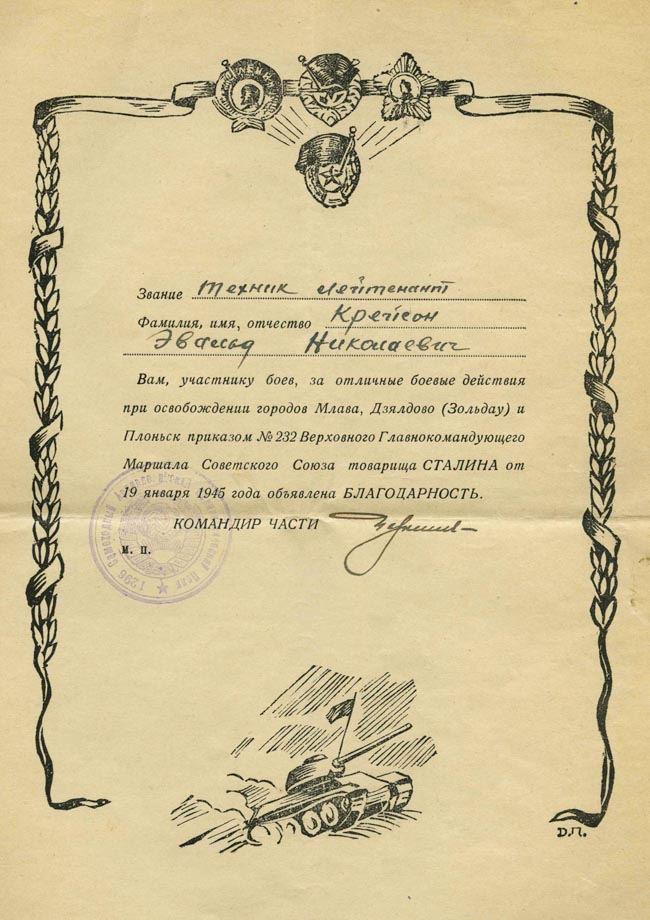 Звание техник лейтенант
Фамилия, имя, отчество Крейсон
Эвальд Николаевич
Вам, участнику боев, за отличные боевые действия
при освобождении городов Млава, Дзялдово (Зольдау) и
Плоньск приказом № 232 Верховного Главнокомандующего
Маршала Советского Союза товарища СТАЛИНА от
19 января 1945 года объявлена БЛАГОДАРНОСТЬ.
КОМАНДИР ЧАСТИ
М. П.
1296 Самоходный Полк
Д.П.